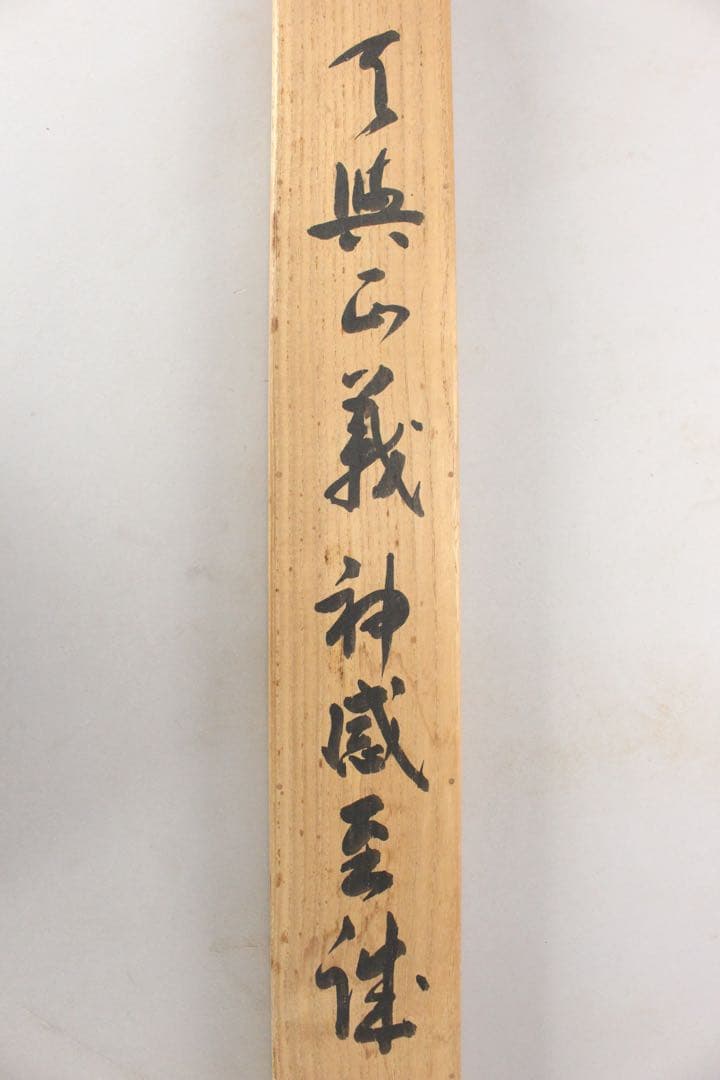 天與正義神感至誠